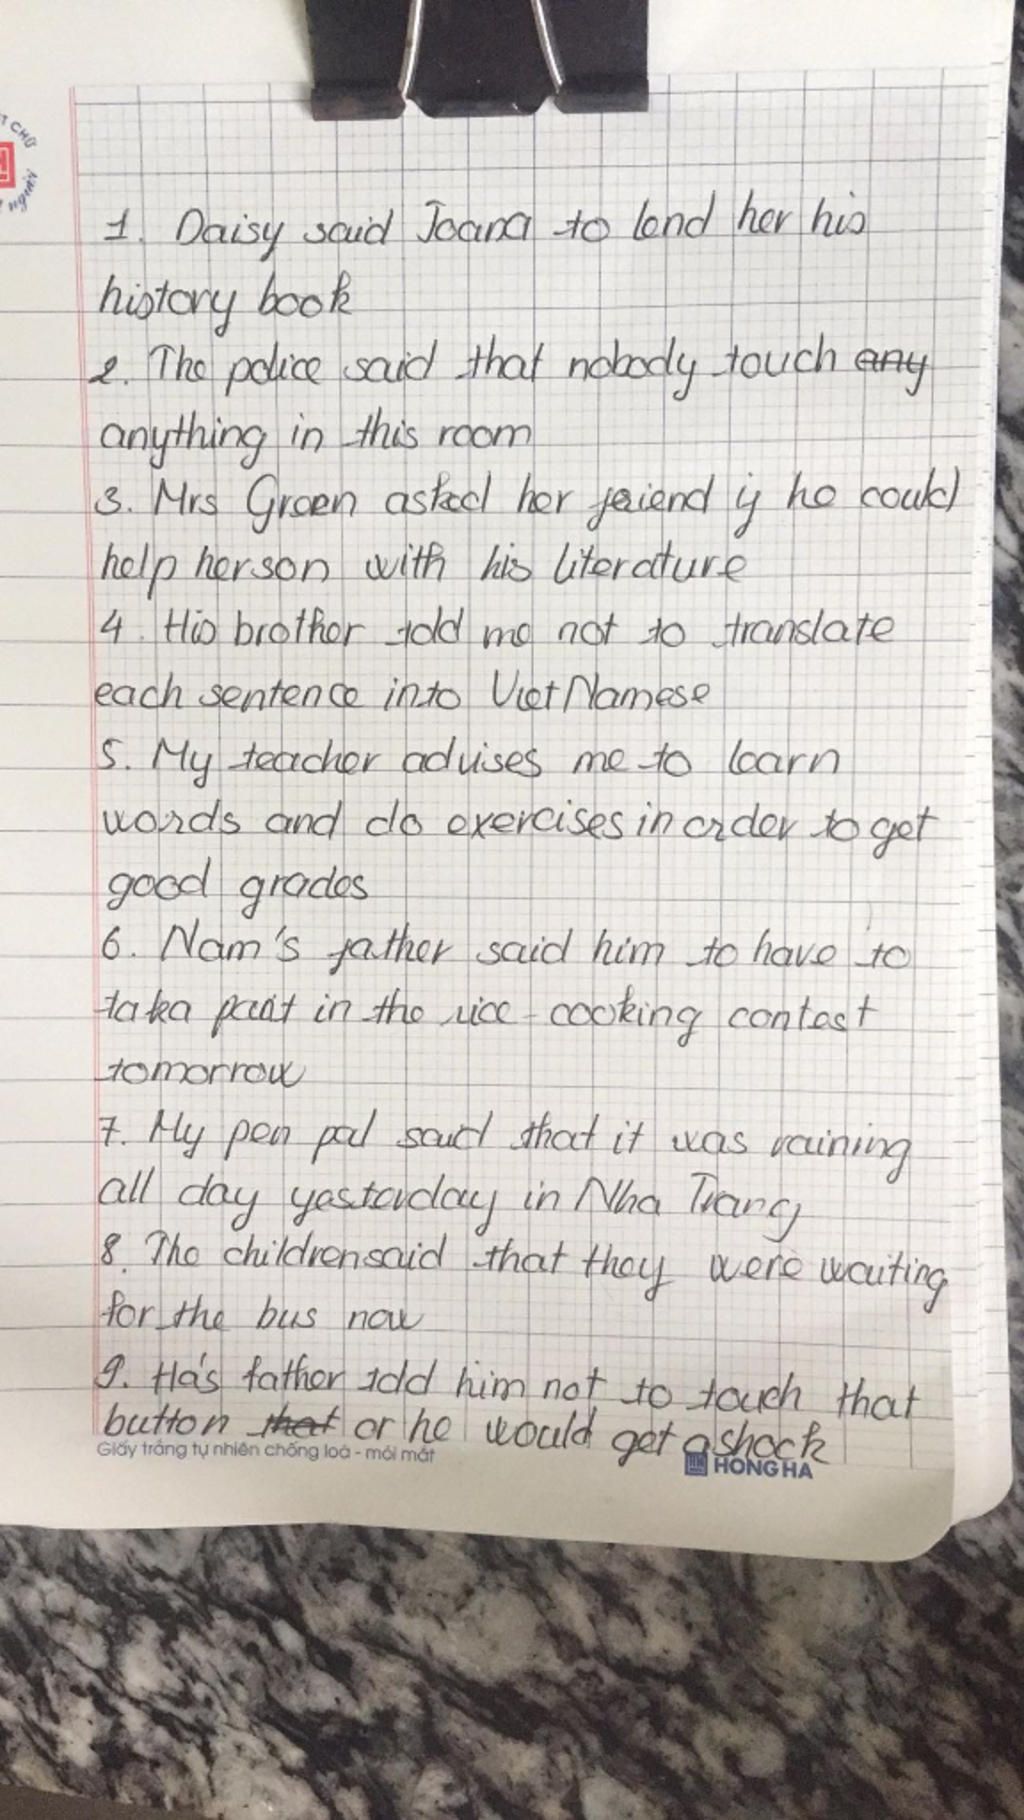 1. Daisy said Joana to lend her his
history book
2. The police said that nobody touch any
anything in this room
3. Mrs Green asked her friend if he could
help her son with his literature
4. His brother told me not to translate
each sentence into VietNamese
5. My teacher advises me to learn
words and do exercises in order to get
good grades
6. Nam's father said him to have to
taka part in the rice-cooking contest
tomorrow
7. My pen pal said that it was raining
all day yesterday in Nha Trang
8. The children said that they were waiting
for the bus now
9. Ha's father told him not to touch that
button that or he would get a shock
Giấy trắng tự nhiên chống loá - mỏi mắt
HONG HA